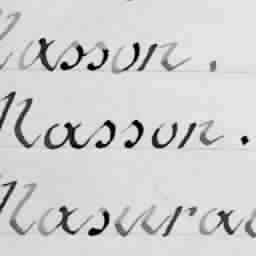 Masson.
Masson.
Masurau